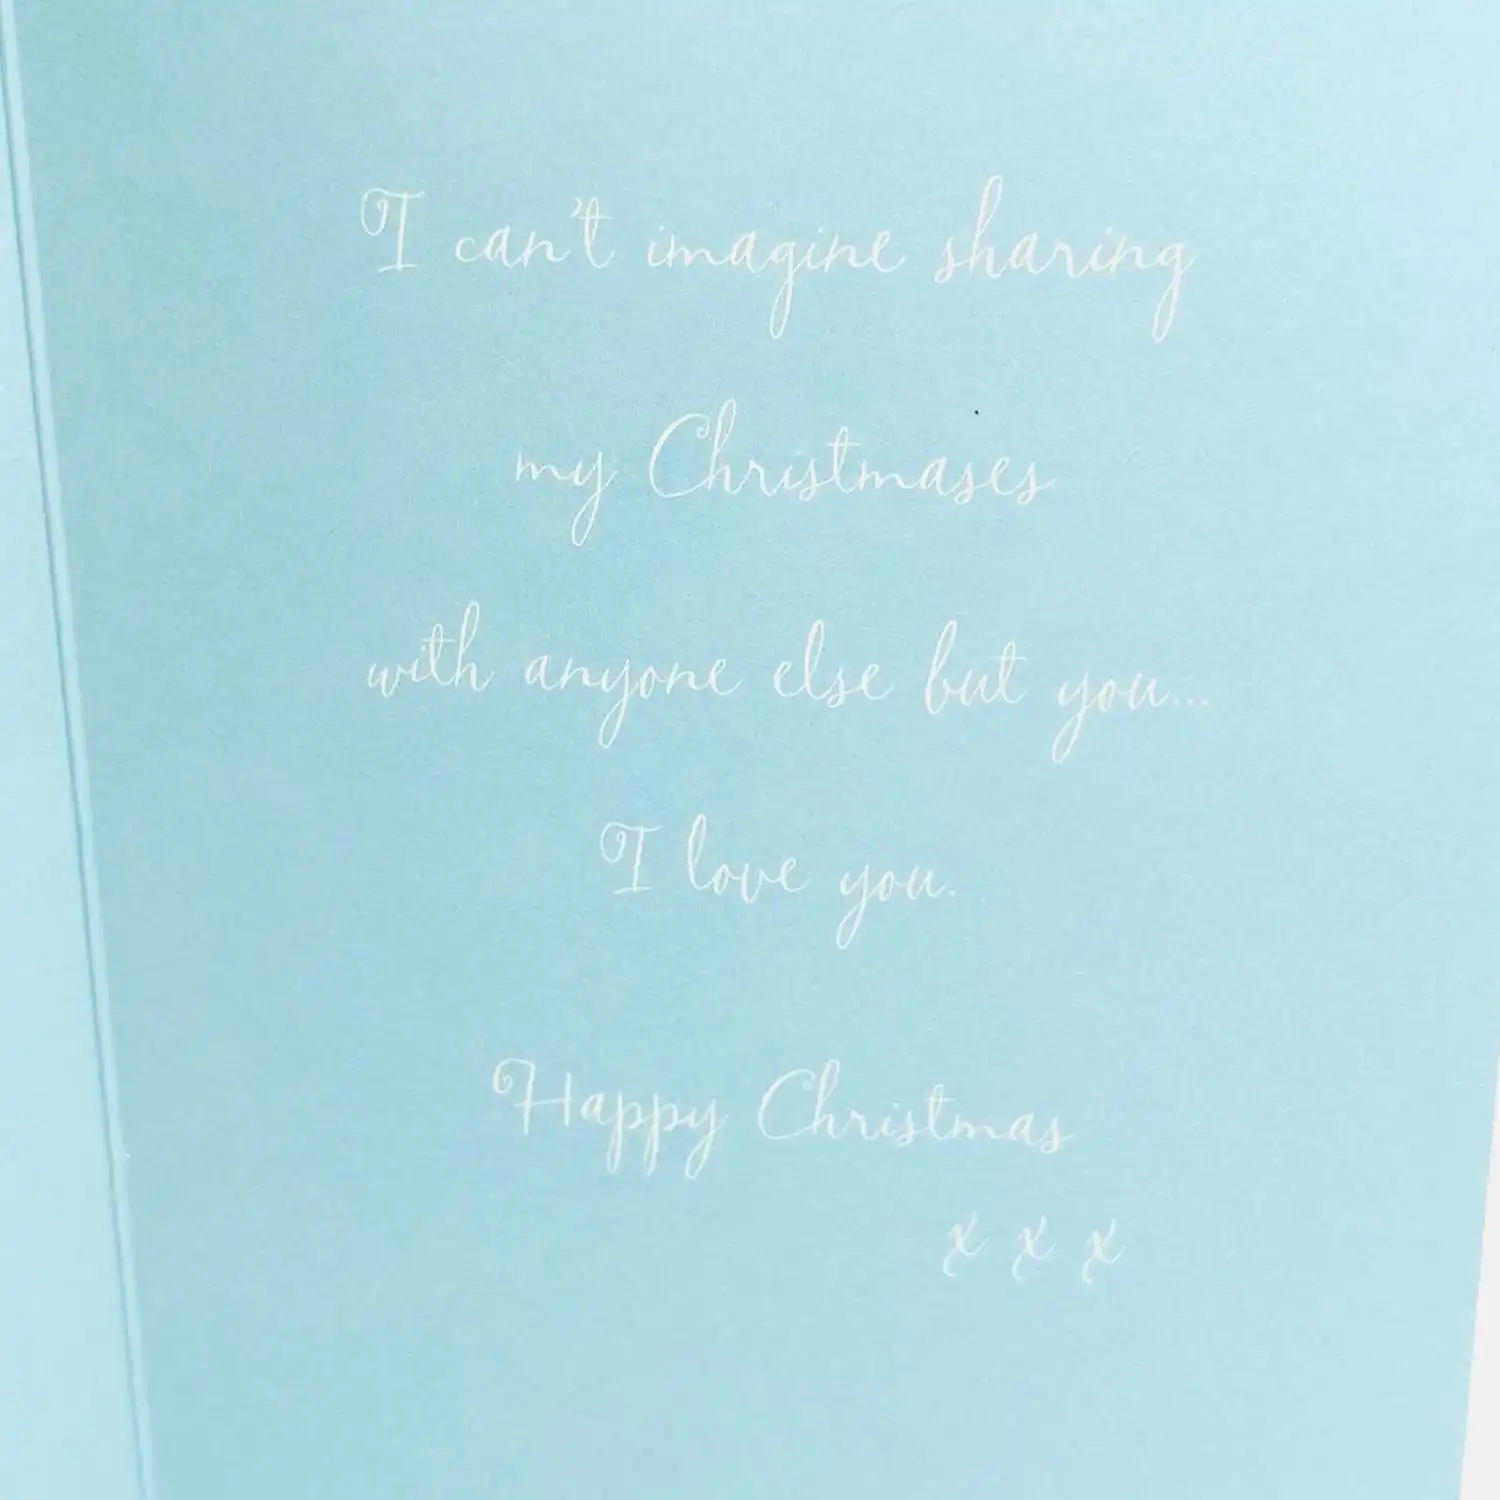 I can't imagine sharing
my Christmases
with anyone else but you...
I love you.
Happy Christmas
x x x